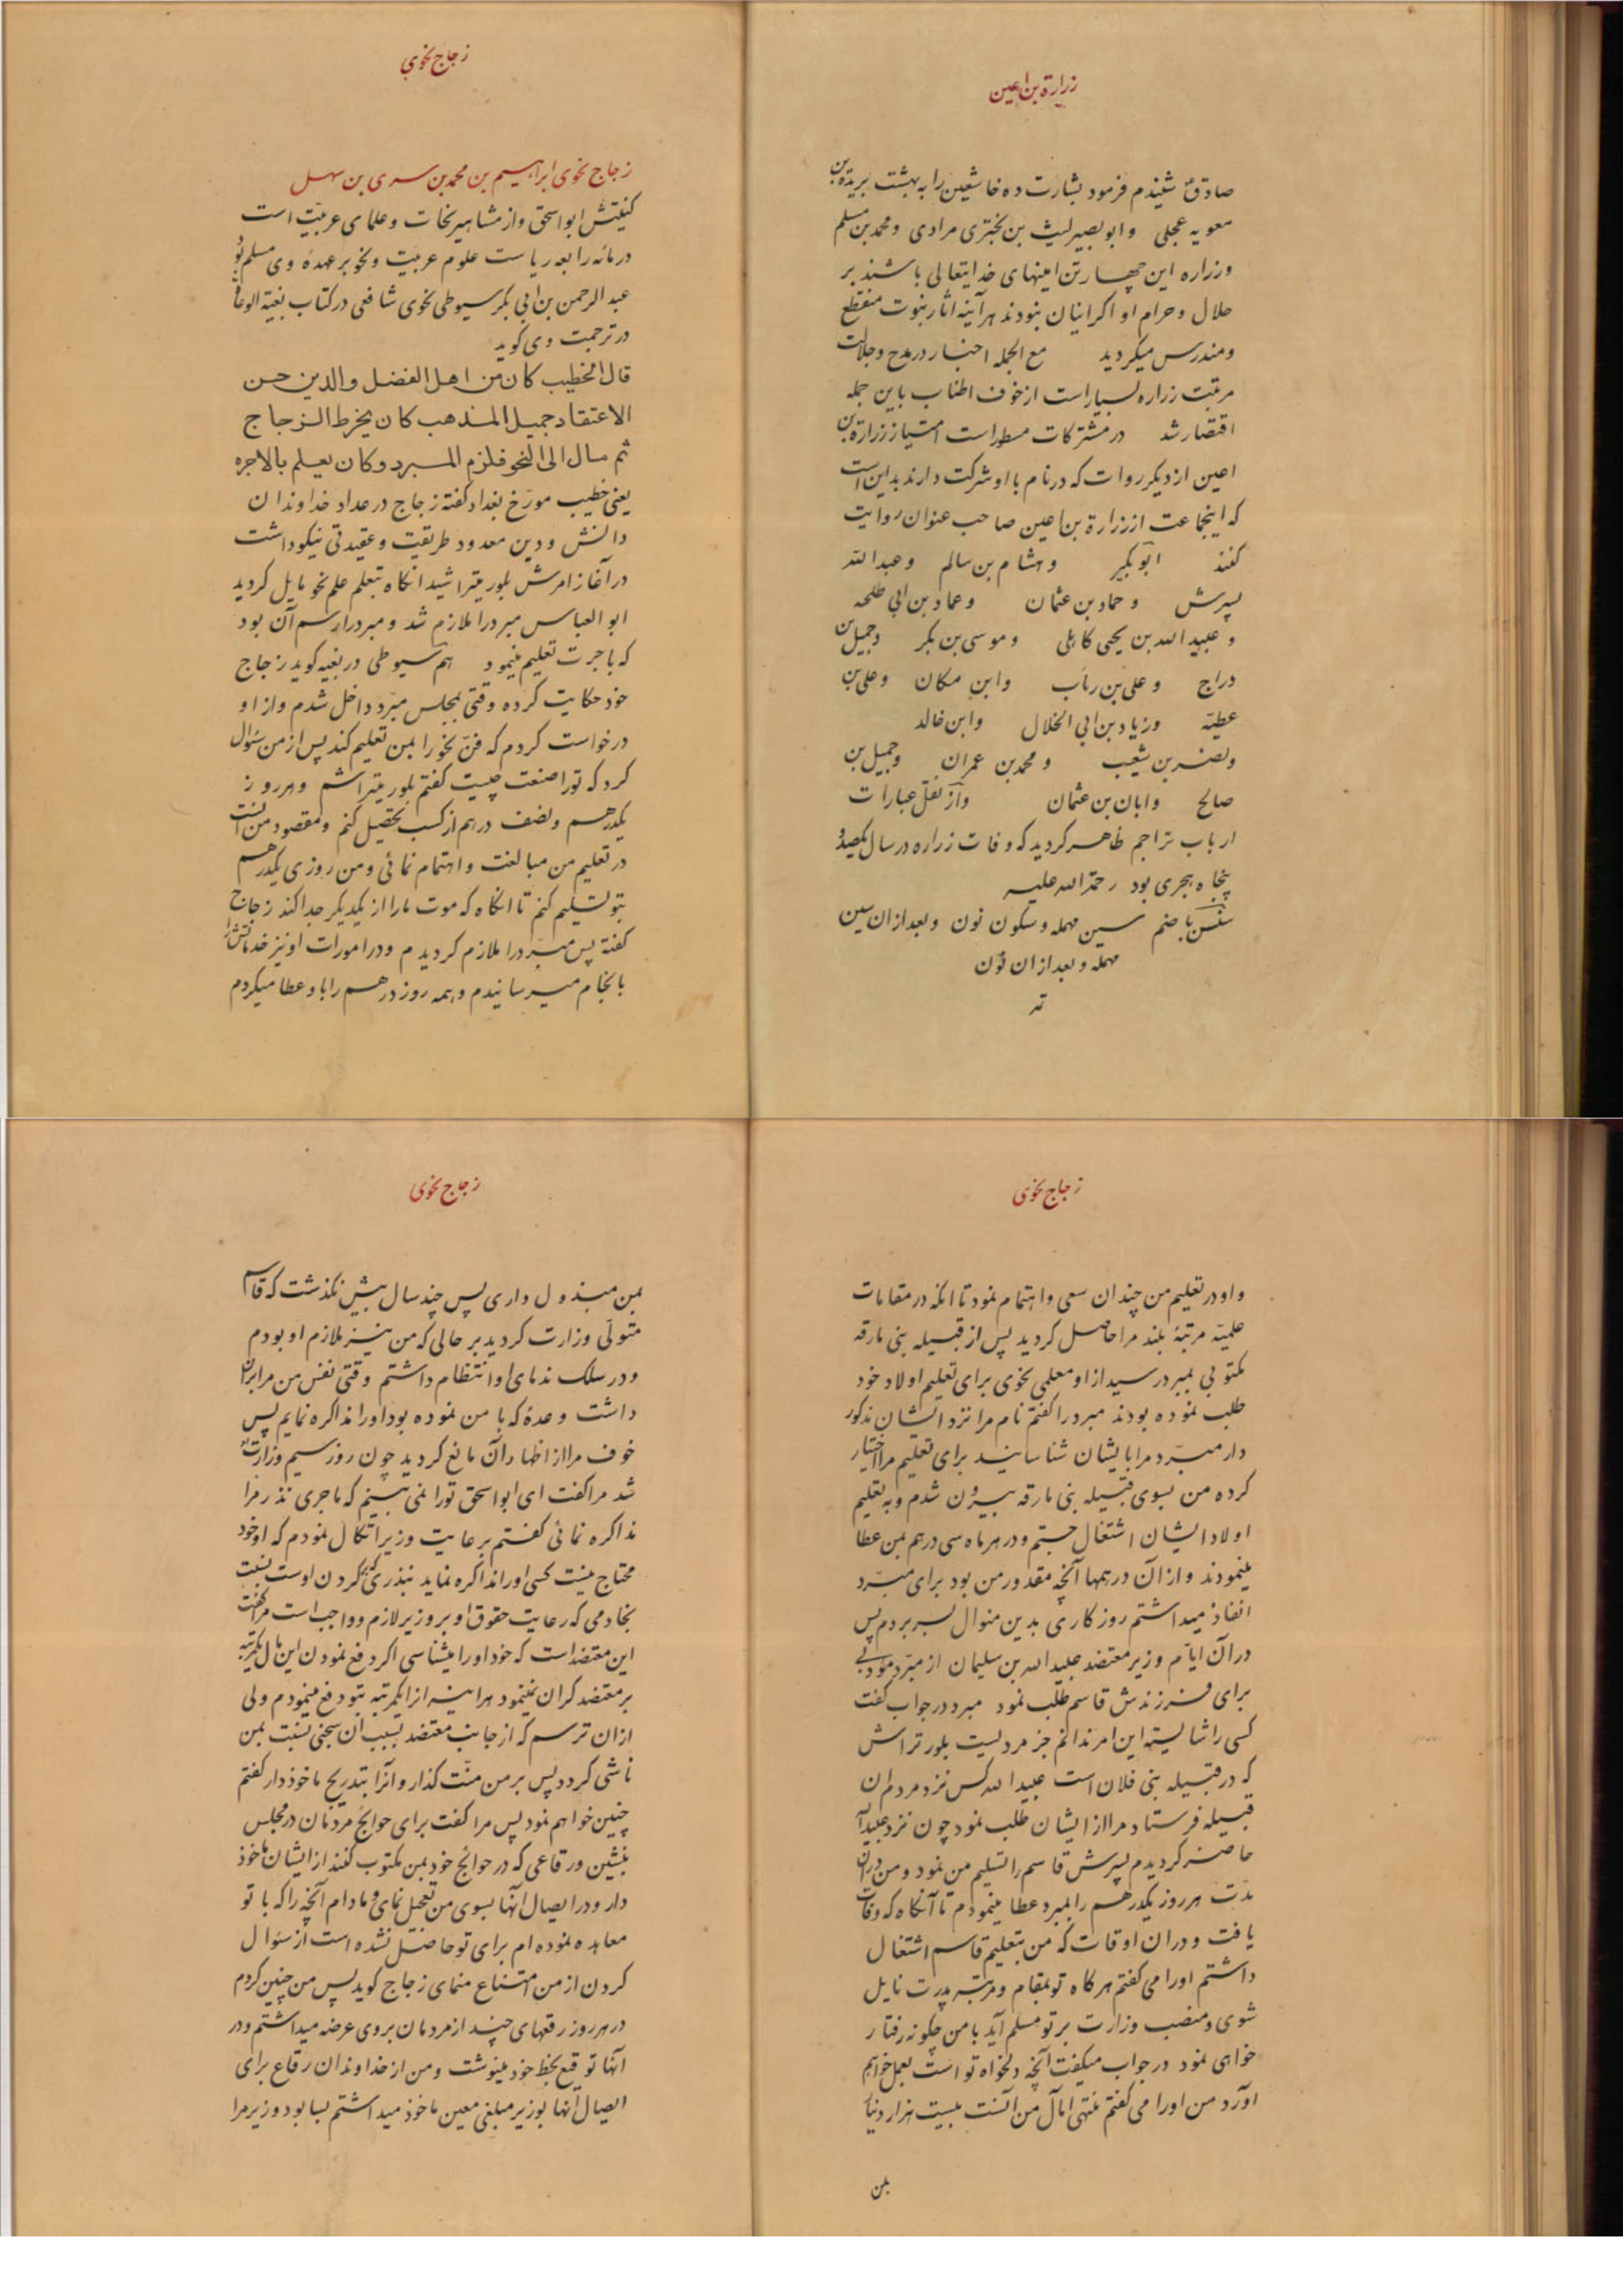 زرارة بن اعین
صادق شنیدم فرمود بشارت ده خاشعین را به بهشت برید بن
معویه عجلی و ابو بصیر لیث بن بختری مرادی و محمد بن مسلم
و زراره این چهار تن امینهای خدایتعالی باشند بر
حلال و حرام او اکر اینان نبودند هر آینه اثار نبوت منقطع
و مندرس میکردید مع الجمله اخبار در مدح و جلالت
مرتبت زراره بسیار است از خوف اطناب باین جمله
اقتصار شد در مشترکات مسطور است امتیاز زرارة بن
اعین از دیکر روات که در نام با او شرکت دارند بدین است
که اینجماعت از زرارة بن اعین صاحب عنوان روایت
کنند ابو بکیر و هشام بن سالم و عبد الله
پسرش و حماد بن عثمان و عماد بن ابی طلحه
و عبید الله بن یحیی کاهلی و موسی بن بکر و جمیل بن
دراج و علی بن رئاب و ابن مکان و علی بن
عطیه و زیاد بن ابی الخلال و ابن خالد
و نضر بن شعیب و محمد بن عمران و جمیل بن
صالح و ابان بن عثمان و از نقل عبارات
ارباب تراجم ظاهر کردید که وفات زراره در سال یکصد و
پنجاه هجری بود رحمة الله علیه
سنسن با ضم سین مهمله و سکون نون و بعد از ان سین
مهمله و بعد از ان نون
زجاج نحوی
زجاج نحوی ابراهیم بن محمد بن سری بن سهل
کنیتش ابو اسحق و از مشاهیر نحات و علمای عربیت است
در مائه رابعه ریاست علوم عربیت و نحو بر عهده وی مسلم بود
عبد الرحمن بن ابی بکر سیوطی نحوی شافعی در کتاب بغیة الوعاة
در ترجمت وی کوید
قال الخطیب کان من اهل الفضل والدین حسن
الاعتقاد جمیل المذهب کان یخرط الزجاج
ثم مال الی النحو فلزم المبرد و کان یعلم بالاجره
یعنی خطیب مورخ بغداد کفته زجاج در عداد خداوندان
دانش و دین معدود طریقت و عقیدتی نیکو داشت
در آغاز امرش بلور میتراشید انکاه بتعلم علم نحو مایل کردید
ابو العباس مبرد را ملازم شد و مبرد را رسم آن بود
که باجرت تعلیم مینمود هم سیوطی در بغیه کوید زجاج
خود حکایت کرده وقتی بمجلس مبرد داخل شدم و از او
درخواست کردم که فن نحو را بمن تعلیم کند پس از من سؤال
کرد که تو را صنعت چیست کفتم بلور میتراشم و هر روز
یکدرهم و نصف درهم از کسب تحصیل کنم و مقصود من انست
در تعلیم من مبالغت و اهتمام نمائی و من روزی یکدرهم
بتو تسلیم کنم تا انکاه که موت ما را از یکدیکر جدا کند زجاج
کفته پس مبرد را ملازم کردیدم و در امورات او نیز خدماتش را
بانجام میرسانیدم و همه روز درهم را باو عطا میکردم
زجاج نحوی
و او در تعلیم من چندان سعی و اهتمام نمود تا انکه در مقامات
علمیه مرتبه بلند مرا حاصل کردید پس از قبیله بنی مارقه
مکتوبی بمبرد رسید از او معلمی نحوی برای تعلیم اولاد خود
طلب نموده بودند مبرد را کفتم نام مرا نزد ایشان مذکور
دار مبرد مرا بایشان شناسانید برای تعلیم مرا اختیار
کرده من بسوی قبیله بنی مارقه بیرون شدم و به تعلیم
اولاد ایشان اشتغال جستم و در هر ماه سی درهم بمن عطا
مینمودند و از آن درهمها آنچه مقدور من بود برای مبرد
انفاذ میداشتم روزکاری بدین منوال بسر بردم پس
در آن ایام وزیر معتضد عبید الله بن سلیمان از مبرد مؤدبی
برای فرزندش قاسم طلب نمود مبرد در جواب کفت
کسی را شایسته این امر ندانم جز مردیست بلور تراش
که در قبیله بنی فلان است عبید الله کس نزد مردم ان
قبیله فرستاد مرا از ایشان طلب نمود چون نزد عبید الله
حاضر کردیدم پسرش قاسم را تسلیم من نمود و من در ان
مدت هر روز یکدرهم را بمبرد عطا مینمودم تا آنکاه که وفات
یافت و در ان اوقات که من بتعلیم قاسم اشتغال
داشتم او را می کفتم هر کاه تو بمقام و مرتبه پدرت نایل
شوی و منصب وزارت بر تو مسلم آید با من چکونه رفتار
خواهی نمود در جواب میکفت آنچه دلخواه تو است بعمل خواهم
آورد من او را می کفتم منتهی آمال من آنست بیست هزار دینار
بمن
زجاج نحوی
بمن مبذول داری پس چند سال بیش نکذشت که قاسم
متولی وزارت کردید بر حالی که من نیز ملازم او بودم
و در سلک ندمای او انتظام داشتم وقتی نفس من مرا بران
داشت وعدهٔ که با من نموده بود او را مذاکره نمایم پس
خوف مرا از اظهار آن مانع کردید چون روز سیم وزارتش
شد مرا کفت ای ابو اسحق تو را نمی بینم که ماجری نذر مرا
مذاکره نمائی کفتم بر عایت وزیر اتکال نمودم که او خود
محتاج نیست کسی او را مذاکره نماید بنذری که بر کردن اوست نسبت
بخادمی که رعایت حقوق او بر وزیر لازم و واجب است مرا کفت
این معتضد است که خود او را میشناسی اکر دفع نمودن این مال یکمرتبه
بر معتضد کران نمینمود هر اینه انرا یکمرتبه بتو دفع مینمودم ولی
از ان ترسم که از جانب معتضد بسبب ان سخنی نسبت بمن
ناشی کردد پس بر من منت کذار و آنرا بتدریج ماخوذ دار کفتم
چنین خواهم نمود پس مرا کفت برای حوائج مردمان در مجلس
بنشین و رقاعی که در حوائج خود بمن مکتوب کنند از ایشان ماخوذ
دار و در ایصال آنها بسوی من تعجل نمای و مادام آنچه را که با تو
معاهده نموده ام برای تو حاصل نشده است از سؤال
کردن از من امتناع منمای زجاج کوید پس من چنین کردم
در هر روز رقعهای چند از مردمان بر وی عرضه میداشتم و در
آنها توقیع بخط خود مینوشت و من از خداوندان رقاع برای
ایصال آنها بوزیر مبلغی معین ماخوذ میداشتم بسا بود وزیر مرا